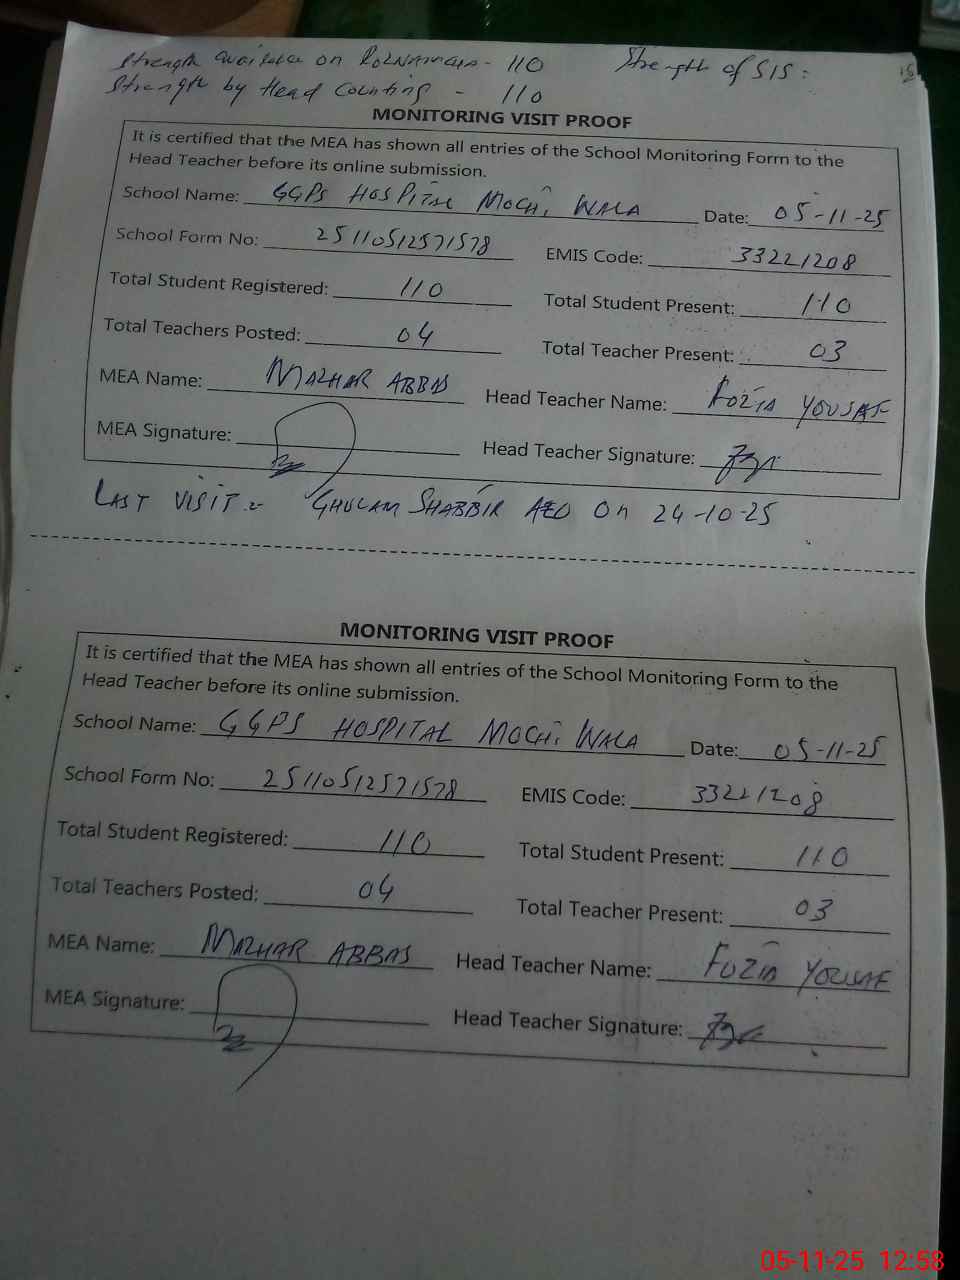 Strength available on Roznamcha - 110 Strength of SIS:
Strength by Head Counting - 110
MONITORING VISIT PROOF
It is certified that the MEA has shown all entries of the School Monitoring Form to the
Head Teacher before its online submission.
School Name: GGPS HOSPITAL MOCHI WALA Date: 05-11-25
School Form No: 25110512571578 EMIS Code: 33221208
Total Student Registered: 110 Total Student Present: 110
Total Teachers Posted: 04 Total Teacher Present: 03
MEA Name: MAZHAR ABBAS Head Teacher Name: FOZIA YOUSAF
MEA Signature: Head Teacher Signature:
LAST VISIT:- GHULAM SHABBIR AEO On 24-10-25
MONITORING VISIT PROOF
It is certified that the MEA has shown all entries of the School Monitoring Form to the
Head Teacher before its online submission.
School Name: GGPS HOSPITAL MOCHI WALA Date: 05-11-25
School Form No: 25110512571578 EMIS Code: 33221208
Total Student Registered: 110 Total Student Present: 110
Total Teachers Posted: 04 Total Teacher Present: 03
MEA Name: MAZHAR ABBAS Head Teacher Name: FOZIA YOUSAF
MEA Signature: Head Teacher Signature:
05-11-25 12:58